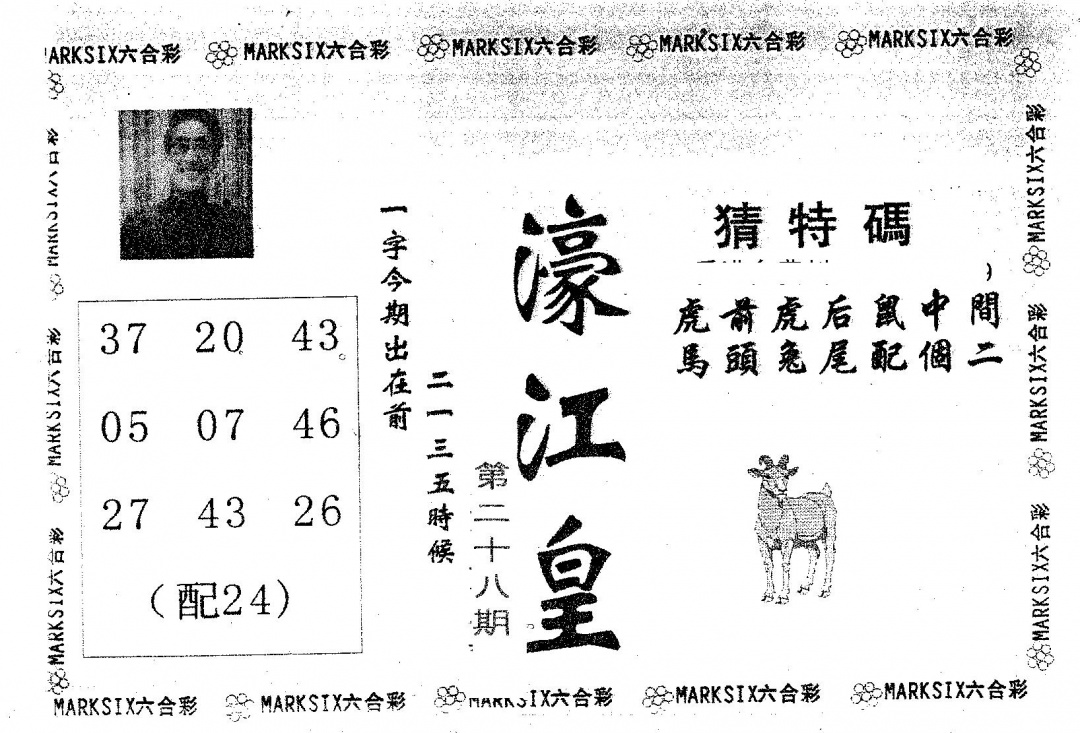 MARKSIX六合彩 MARKSIX六合彩 MARKSIX六合彩 MARKSIX六合彩
猜特碼
虎前虎后鼠中間
馬頭兔尾配個二
濠江皇
第二十八期
一字今期出在前
二一三五時候
37 20 43
05 07 46
27 43 26
(配24)
MARKSIX六合彩
MARKSIX六合彩
MARKSIX六合彩
MARKSIX六合彩
MARKSIX六合彩
MARKSIX六合彩
MARKSIX六合彩 MARKSIX六合彩 MARKSIX六合彩 MARKSIX六合彩